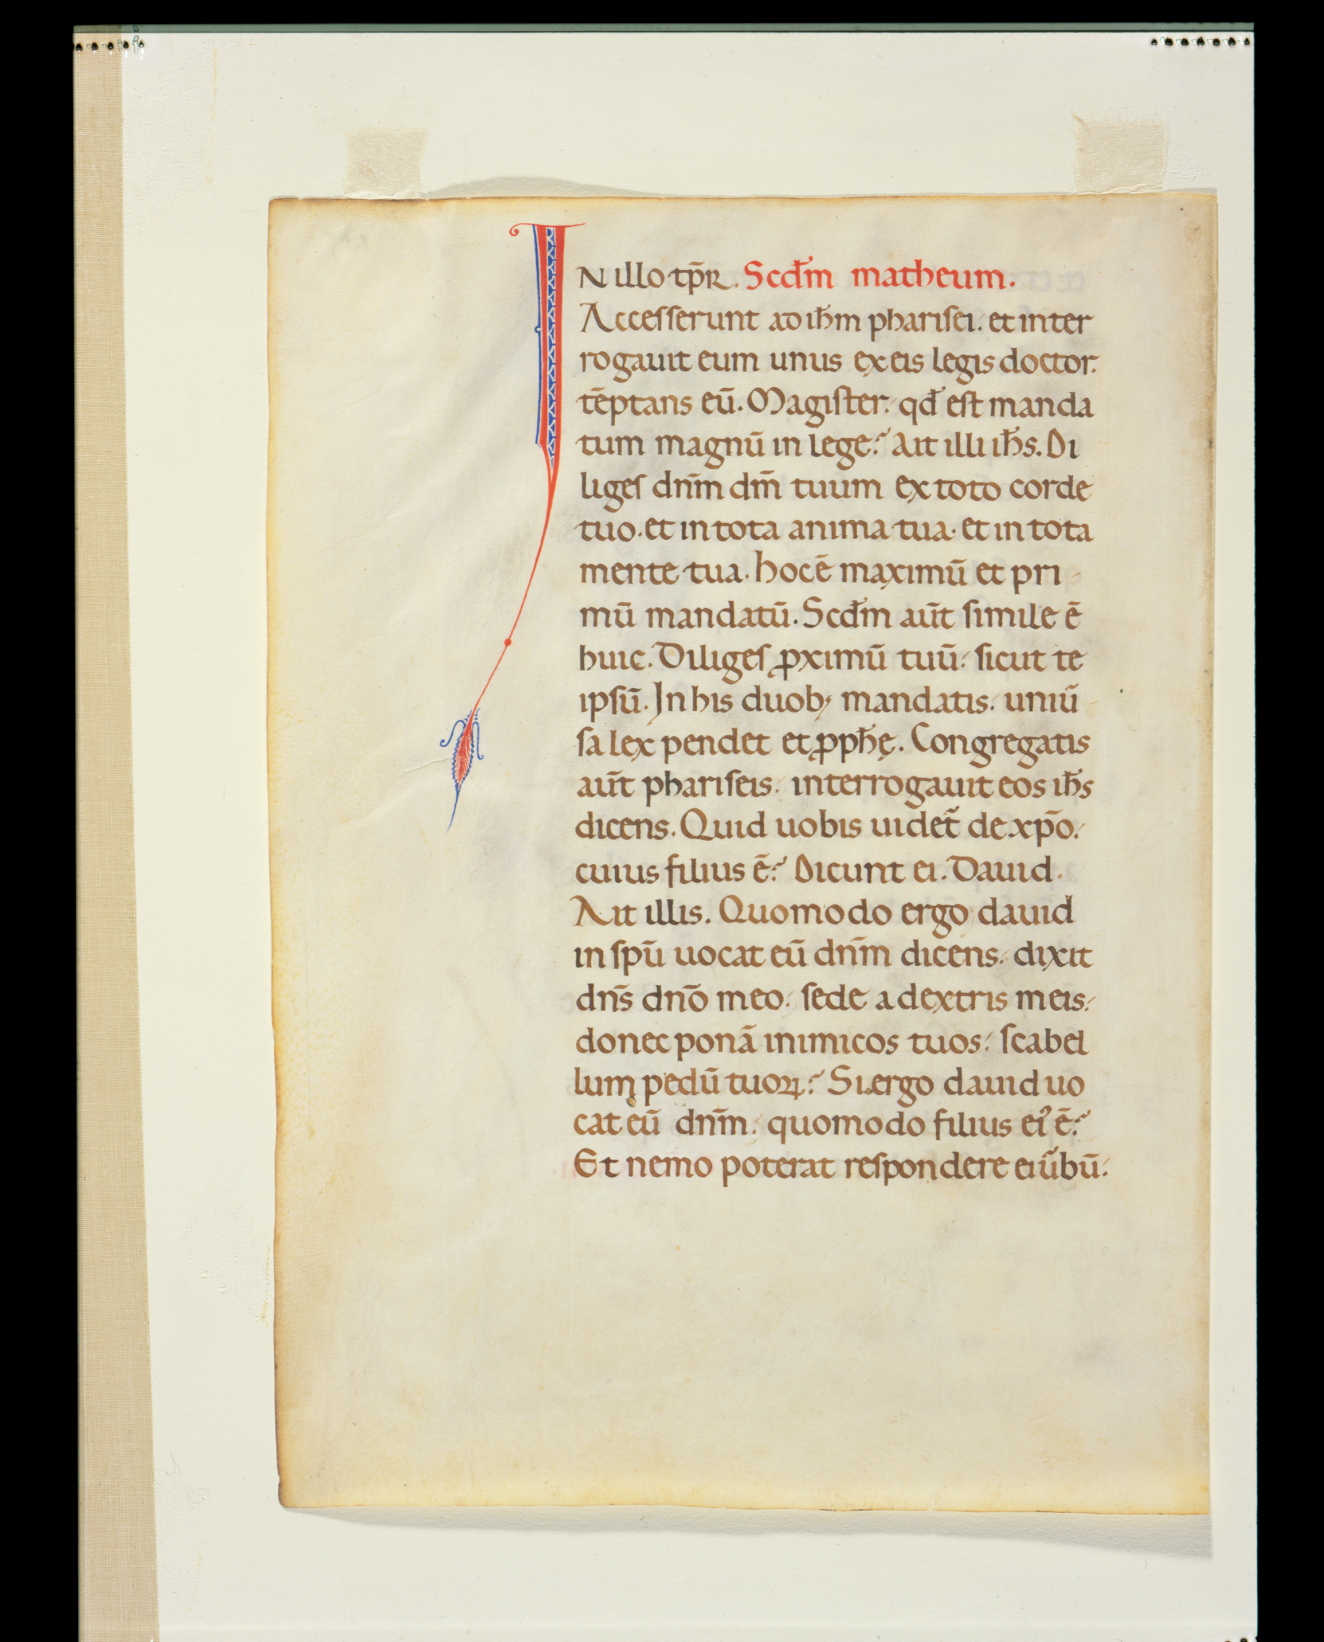 IN illo tp̄r. Scd̄m matheum.
Acceſſerunt ad ih̄m phariſei. et inter
rogauit eum unus ex eis legis doctor.
tēptans eū. Magiſter. qđ eſt manda
tum magnū in lege? Ait illi ih̄s. Di
ligeſ dn̄m dm̄ tuum ex toto corde
tuo. et in tota anima tua. et in tota
mente tua. hoc ē maximū et pri
mū mandatū. Scd̄m aūt ſimile ē
huic. Diligeſ ꝓximū tuū. ſicut te
ipſū. In his duobꝫ mandatis. uniū
ſa lex pendet et ꝓpħę. Congregatis
aūt phariſeis. interrogauit eos ih̄s
dicens. Quid uobis uidet̄ de xp̄o.
cuius filius ē? Dicunt ei. Dauid.
Ait illis. Quomodo ergo dauid
in ſpū uocat eū dn̄m dicens. dixit
dn̄s dn̄o meo. ſede a dextris meis.
donec ponā inimicos tuos. ſcabel
lum pedū tuoꝝ? Si ergo dauid uo
cat eū dn̄m. quomodo filius eiꝰ ē?
Et nemo poterat reſpondere ei ūbū.